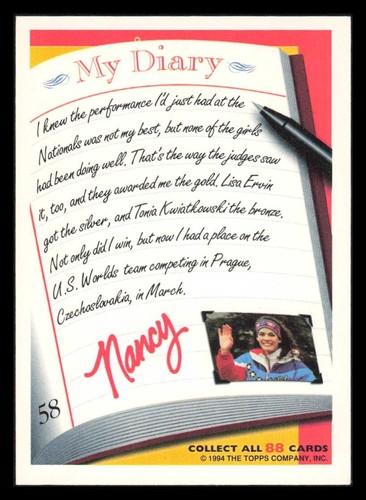 My Diary
I knew the performance I'd just had at the
Nationals was not my best, but none of the girls
had been doing well. That's the way the judges saw
it, too, and they awarded me the gold. Lisa Ervin
got the silver, and Tonia Kwiatkowski the bronze.
Not only did I win, but now I had a place on the
U.S. Worlds team competing in Prague,
Czechoslovakia, in March.
Nancy
58
COLLECT ALL 88 CARDS
© 1994 THE TOPPS COMPANY, INC.